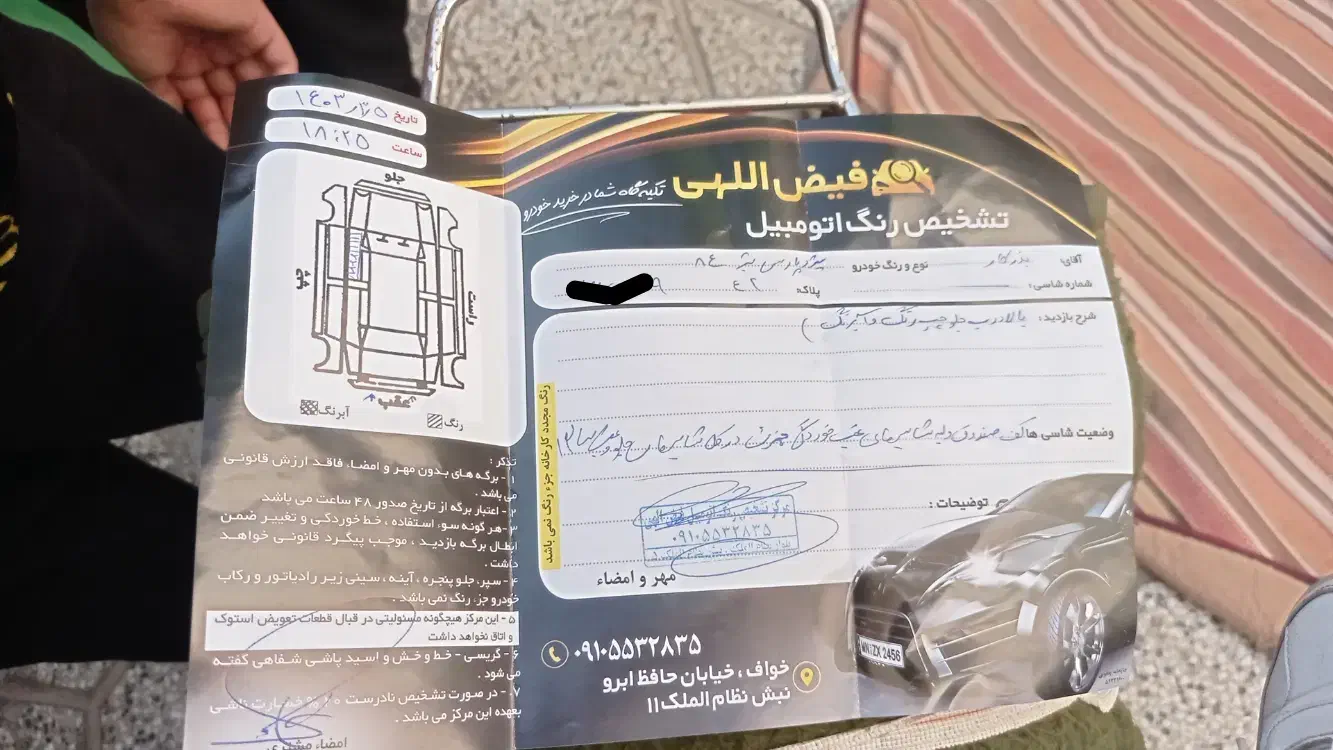 فیض اللهی
تکیه‌گاه شما در خرید خودرو
تشخیص رنگ اتومبیل
آقای:
نوع و رنگ خودرو
۸۴
شماره شاسی:
پلاک:
شرح بازدید: بالا درب جلو چپ رنگ و آبرنگ
وضعیت شاسی ها کف صندوق و
توضیحات :
رنگ مجدد کارخانه جزء رنگ نمی باشد
۰۹۱۰۵۵۳۲۸۳۵
مهر و امضاء
۰۹۱۰۵۵۳۲۸۳۵
خواف ، خیابان حافظ ابرو
نبش نظام الملک ۱۱
MN:ZX 2456
تاریخ
ساعت ۱۸:۲۵
جلو
چپ
راست
عقب
آبرنگ
رنگ
تذکر :
۱ - برگه های بدون مهر و امضا، فاقد ارزش قانونی
می باشد .
۲- اعتبار برگه از تاریخ صدور ۴۸ ساعت می باشد
۳-هر گونه سوء استفاده ، خط خوردگی و تغییر ضمن
ابطال برگه بازدید ، موجب پیگرد قانونی خواهد
داشت .
۴ - سپر، جلو پنجره ، آینه ، سینی زیر رادیاتور و رکاب
خودرو جزء رنگ نمی باشد .
۵ - این مرکز هیچگونه مسئولیتی در قبال قطعات تعویض استوک
و اتاق نخواهد داشت
۶- گریسی - خط و خش و اسید پاشی شفاهی گفته
می شود .
۷- در صورت تشخیص نادرست
بعهده این مرکز می باشد .
امضاء مشتری